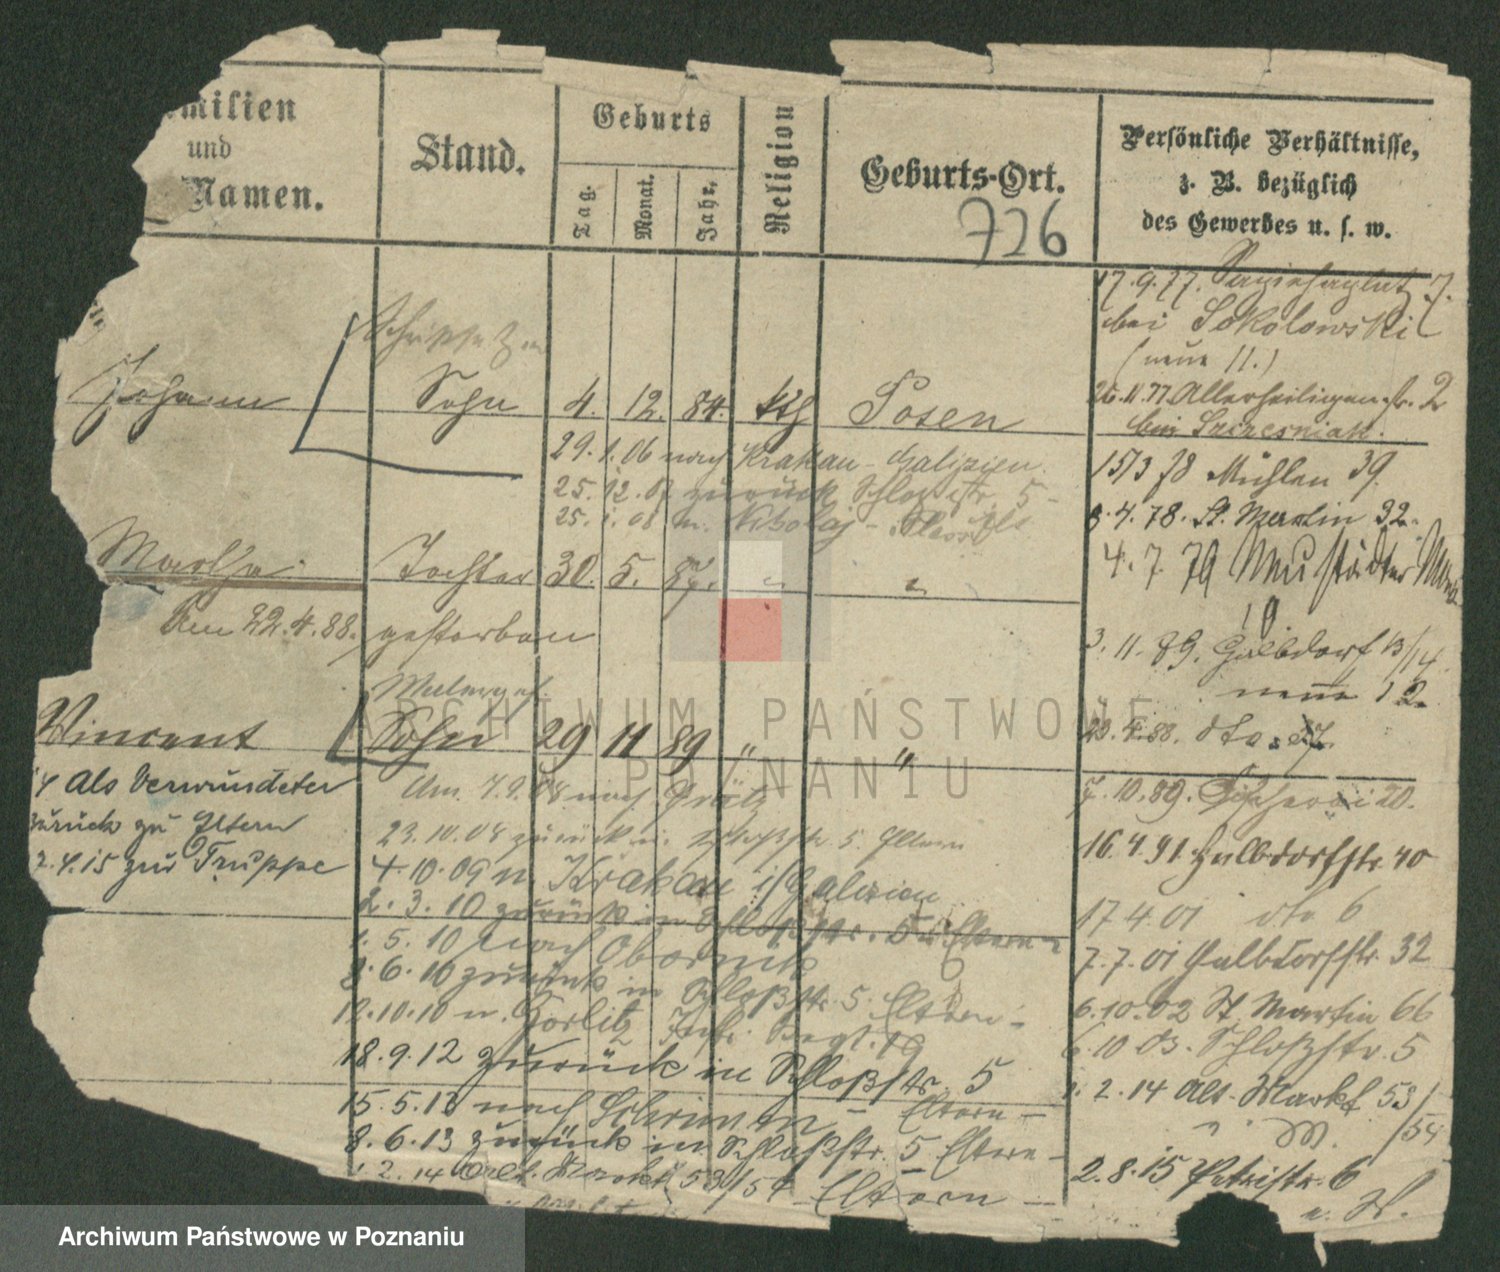 milien
und
Namen.
Stand.
Geburts
Tag.
Monat.
Jahr.
Religion
Geburts-Ort.
726
Persönliche Verhältnisse,
z. B. bezüglich
des Gewerbes u. s. w.
17.9.77.
bei Sokolowski
(neue 11.)
Johann
Sohn 4. 12. 84. kth Posen
26.11.77 Allerheiligenstr. 2
bei Szczesniak.
29.1.06 nach Krakau - Galizien.
25.12.07 zurück Schloßstr. 5 -
25.1.08 n.
15/3 78 Mühlen 39.
8.4.78. St. Martin 32.
4.7.79 Neustädter Markt
10
Martha Tochter 30. 5. 87. " "
Am 22.4.88. gestorben
3.11.89. Halbdorf 13/14
neue 12
23. 88. dto. 27.
Malergeh.
Vincent Sohn 29 11 89 " "
Als Verwundeter
zurück zu Eltern
2.4.15 zur Truppe
Am 7.9.08 nach Grätz
23.10.08 zurück n. Schloßstr. 5. Eltern
4.10.09 n. Krakau i/Galizien
2.3.10 zurück in Schloßstr. 5 Eltern -
1.5.10 nach Obornik
8.6.10 zurück in Schloßstr. 5. Eltern -
12.10.10 n. Görlitz Inf. Regt. 19
18.9.12 zurück in Schloßstr. 5
15.5.13 nach Schrimm - Eltern -
8.6.13 zurück in Schloßstr. 5 Eltern -
1.2.14 Alt. Markt 53/54 Eltern -
7.10.89. Fischerei 20.
16.4.91 Halbdorfstr. 40
17.4.01 dto 6
7.7.01 Halbdorfstr. 32
6.10.02 St. Martin 66
6.10.03. Schloßstr. 5
1.2.14 Alt. Markt 53/54
2.8.15 Petristr. 6
ARCHIWUM PAŃSTWOWE
W POZNANIU
Archiwum Państwowe w Poznaniu